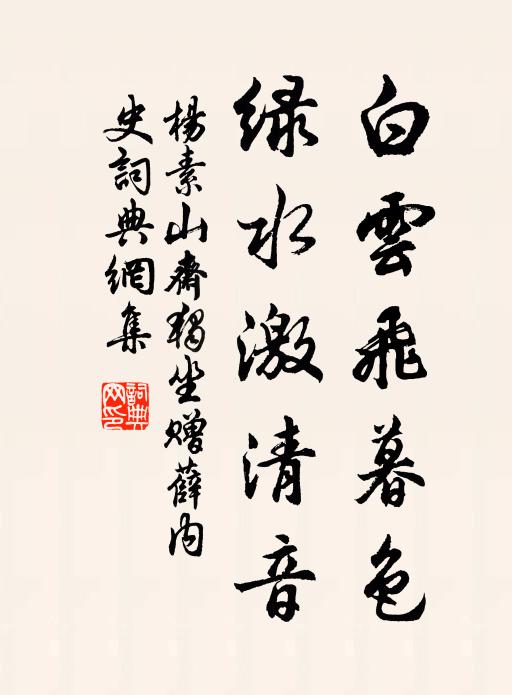 白雲飛暮色
緑水激清音
楊素山齋獨坐赠薛内
史詞典網集
詞典
网印